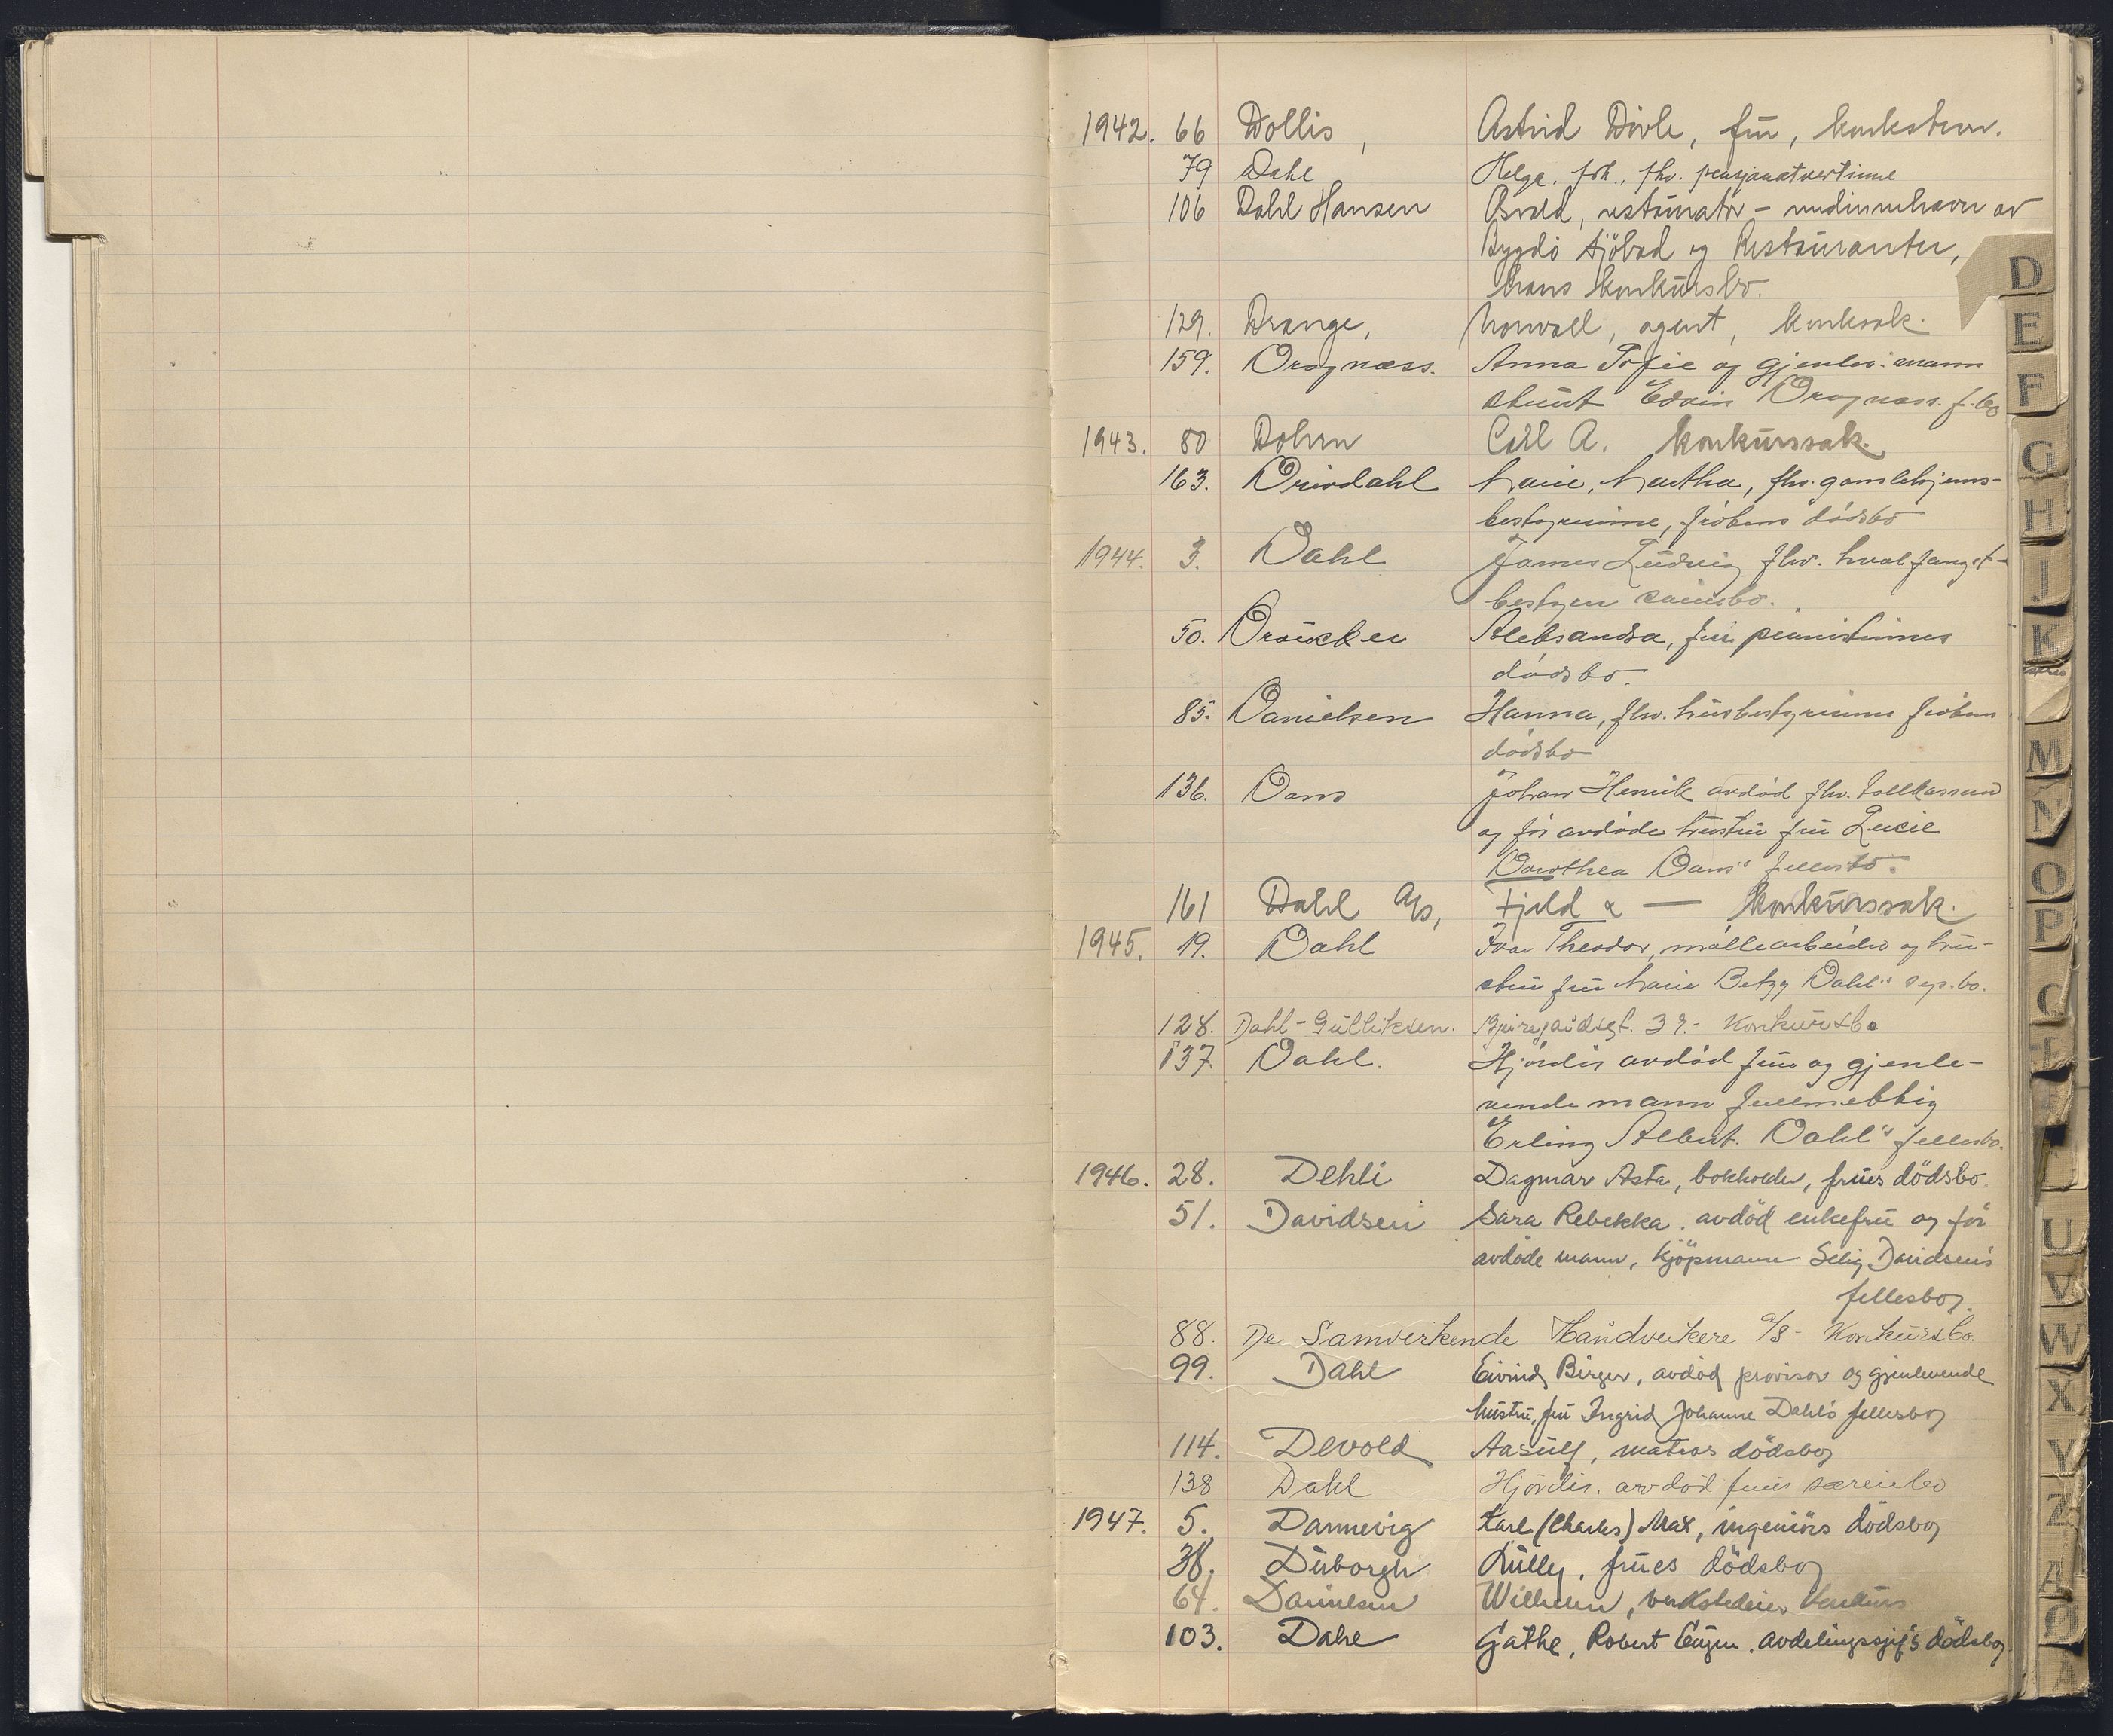 1942. 66 Dollis, Astrid Dövle, frü,
79 Dahl Helga. frk., fhv. pensjonatvertinne
106 Dahl Hansen Osvald, restüratör - medinnehaver av
Bygdö Sjöbad og Restaüranter,
hans konkürsbo.
129. Drange, agent, konksak.
159. Dragnæss. Anna Sofie og gjenlev. mann
Edvin Dragnæss. f.bo
1943. 80 Dohrn Carl A. konkürssak.
163. Drivdahl Marie, Martha, fhv. gamlehjems-
bestyrerinne, frökens dödsbo
1944. 3. Dahl James Lüdvig fhv. hvalfangst-
bestyrer
50. Draücker Aleksandra, frü pianistinnes
dödsbo.
85. Danielsen Hanna, fhv. hüsbestyrerinne frökens
dödsbo
136. Dans Johan Henrik avdöd fhv. tollkasserer
og för avdöde hüstrü frü Lucie
Dorothea Dans' fellesbo.
161 Dahl A/s, Fjeld & — konkürssak.
1945. 19. Dahl Ivar Theodor, möllearbeider og hü-
strü frü Marie Betzy Dahl's sep.bo.
128. Dahl-Gülliksen. 39.- Konkürsbo
137. Dahl. Hjördis avdöd frü og gjenle-
vende mann füllmektig
Erling Albert. Dahl's fellesbo.
1946. 28. Dehli Dagmar Asta, bokholder, früs dödsbo.
51. Davidsen Sara Rebekka. avdöd enkefrü og för
avdöde mann, kjöpmann Selig Davidsen's
fellesbo.
88. De Samvirkende Håndverkere A/S - Konkürsbo.
99. Dahl Eivind Birger, avdöd provisor og gjenlevende
hüstrü, frü Ingrid Johanne Dahl's fellesbo
114. Devold Aasülf, matros dödsbo
138 Dahl Hjördis. avdöd früs særeiebo
1947. 5. Dannevig Karl (Charles) Max, ingeniörs dödsbo
38. Düborgh Lülly. früs dödsbo
64. Danielsen Wilhelm, verkstedeier konkürs
103. Dahl Gathe, Robert Eügen. avdelingssjef's dödsbo
D
E
F
G
H
J
K
M
N
O
P
U
V
W
X
Y
Z
Ø